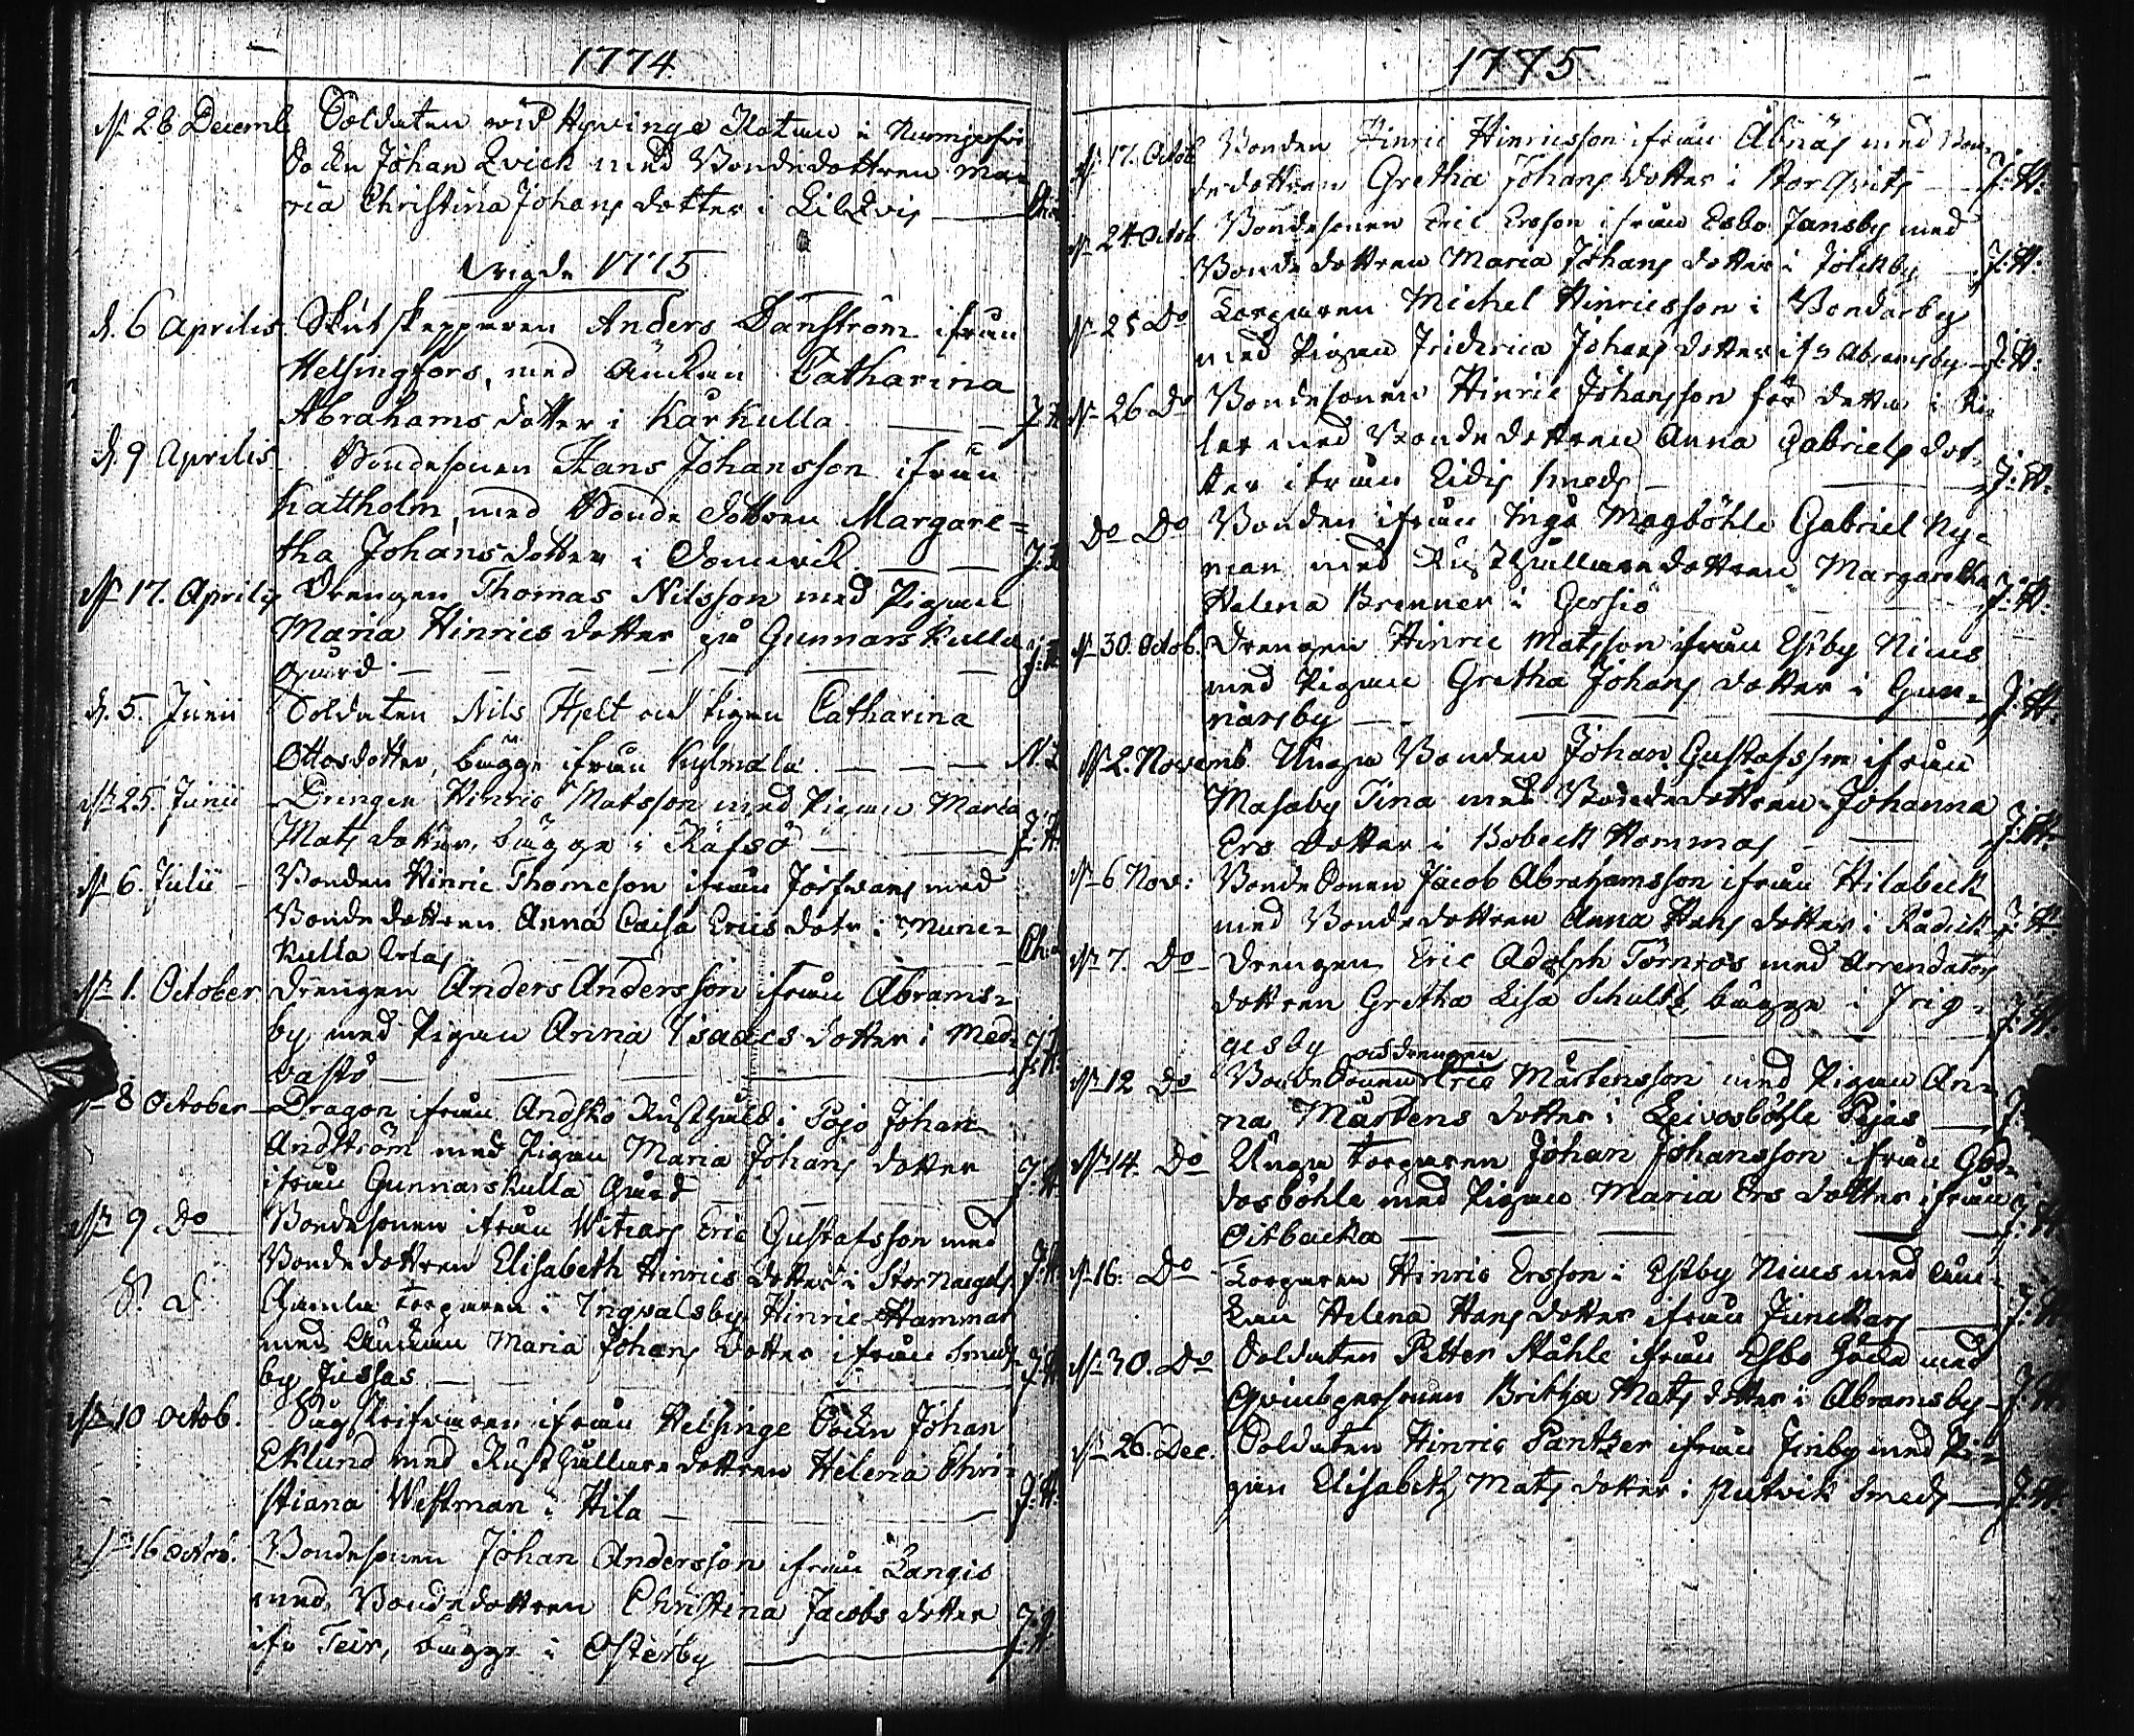 1774
d. 28 Decemb. Soldaten wid Hyvinge Rotan i Nurmijerfvi
Sokn Johan Qvick med Bondedottren Ma=
ria Christina Johans dotter i Lill
Wigde 1775
d. 6 Aprilis Skutskepparen Anders Danström ifrån
Helsingfors, med Änckan Catharina
Abrahams dotter i Kårkulla
d. 9 Aprilis Bondesonen Hans Johansson ifrån
Kattholm, med Bonde dottren Margare=
tha Johansdotter i
d. 17. Aprilis Drengen Thomas Nilsson med Pigan
Maria Hinricsdotter på Gunnarskulla
gård
d. 5. Junii Soldaten Nils Hjelt och Pigan Catharina
Ottosdotter, bägge ifrån Kylmälä
d. 25. Junii Drengen Hinric Matsson med Pigan Maria
Mats dotter, bägge i Räfsö J:H:
d. 6. Julii Bonden Hinric Thomeson ifrån med
Bondedottren Anna Caisa Erics dotr i Mune=
kulla
d. 1. October Drengen Anders Andersson ifrån Abrams=
by med Pigan Anna Isaacs dotter i Med=
vastö J:H:
d. 8 October Dragon ifrån Andskö Rusthåld i Pojo Johan
Andström med Pigan Maria Johans dotter
ifrån Gunnarskulla Gård J:H:
d. 9 Do Bondesonen ifrån Witträsk Eric Gustafsson med
Bondedottren Elisabeth Hinrics dotter i Stor J:H:
D. D. Gamla Torparen i Ingvalsby Hinric Hammar
med Änckan Maria Johans dotter ifrån Smeds=
by Jussas J:H:
d. 10 Octob. ifrån Helsinge Sokn Johan
Eklund med Rusthållare dottren Helena Chri=
stiana Westman i Hila J:H:
d. 16 Octob. Bondesonen Johan Andersson ifrån Långis
med Bondedottren Christina Jacobs dotter
ifr Teir, bägge i Österby J:H:
1775
d. 17. Octob Bonden Hinric Hinricsson ifrån Åbnäs med Bon=
dedottren Gretha Johans dotter i Stor J:H:
d. 24 Octob Bondesonen Eric Ersson ifrån Esbo Jansby med
Bonde dottren Maria Johans dotter i Jolckby J:H:
d. 25 Do Torparen Michel Hinricsson i Bondarby
med Pigan Friderica Johans dotter ifr Abramsby J:H:
d. 26 Do Bondesonen Hinric Johansson för detta i
med Bondedottren Anna Gabriels dot=
ter ifrån Smeds J:H:
Do Do Bonden ifrån Ingå Magböhle Gabriel Ny=
man med Rusthållaredottren Margaretha
Helena Brenner i Gersiö J:H:
d. 30. Octob. Drengen Hinric Matsson ifrån Estby Nicus
med Pigan Gretha Johans dotter i Gun=
narsby J:H:
d. 2. Novemb. Unga Bonden Johan Gustafsson ifrån
Masaby Tina med Bondedottren Johanna
Ers dotter i Bobeck Hommas J:H:
d. 6 Nov: Bonde Sonen Jacob Abrahamsson ifrån Hilabeck
med Bondedottren Anna Hans dotter i Rådick J:H:
d. 7. Do Drengen Eric Adolph Törnros med Arrendators
dottren Gretha Lisa Schultz bägge i Frig=
gesby J:H:
d. 12 Do Bonde Sonen och drengen Eric Mårtensson med Pigan An=
na Mårtens dotter i Leivosböhle Pejas
d. 14. Do Unga Torparen Johan Johansson ifrån God=
dosböhle med Pigan Maria Ers dotter ifrån
Oitbacka
d. 16. Do Torparen Hinric Ersson i Estby Nicus med Änc=
kan Helena Hans dotter ifrån
d. 30. Do Soldaten Petter Ståhle ifrån Esbo Gård med
Qvinspersonen Britha Mats dotter i Abramsby
d. 26. Dec. Soldaten Hinric Pantzer ifrån Finby med Pi=
gan Elisabeth Mats dotter i Smeds J:H: